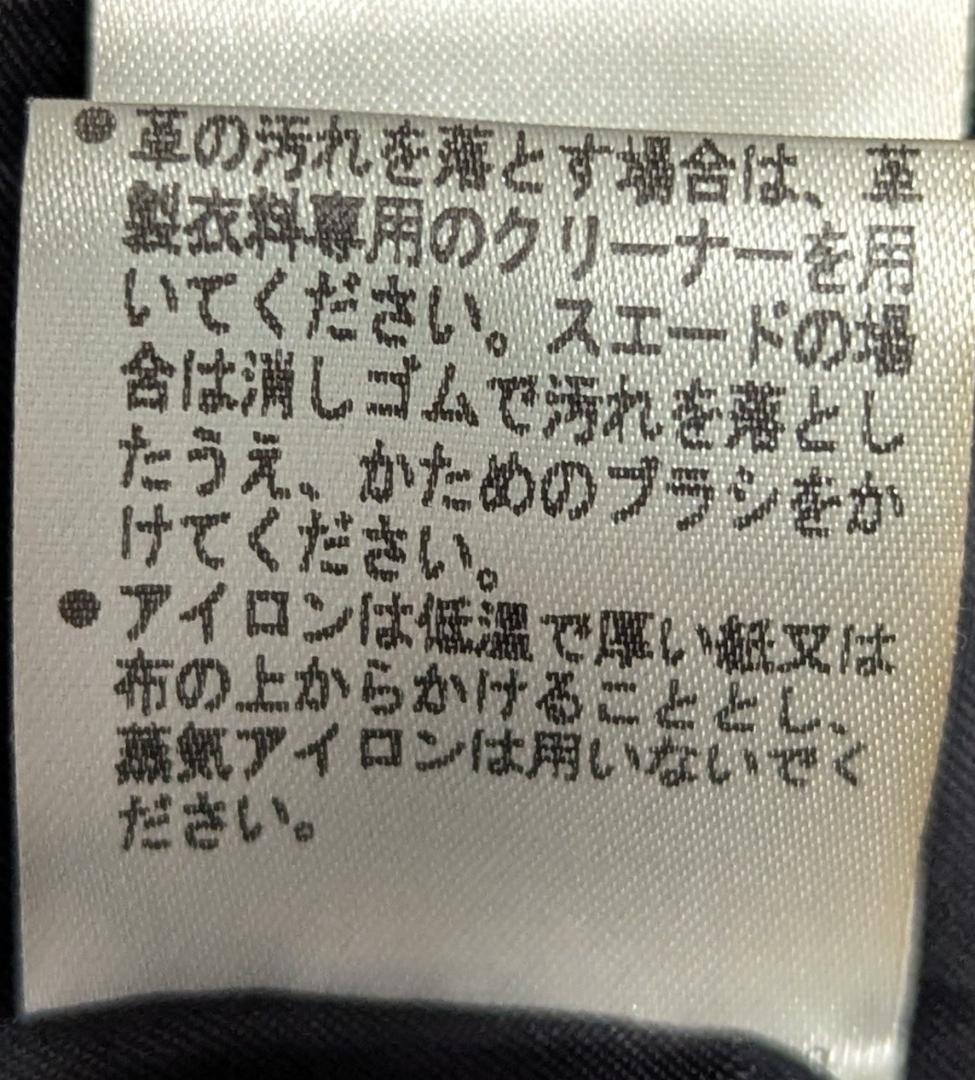 ●革の汚れを落とす場合は、革
製衣料専用のクリーナーを用
いてください。スエードの場
合は消しゴムで汚れを落とし
たうえ、かためのブラシをか
けてください。
●アイロンは低温で厚い紙又は
布の上からかけることとし、
蒸気アイロンは用いないでく
ださい。